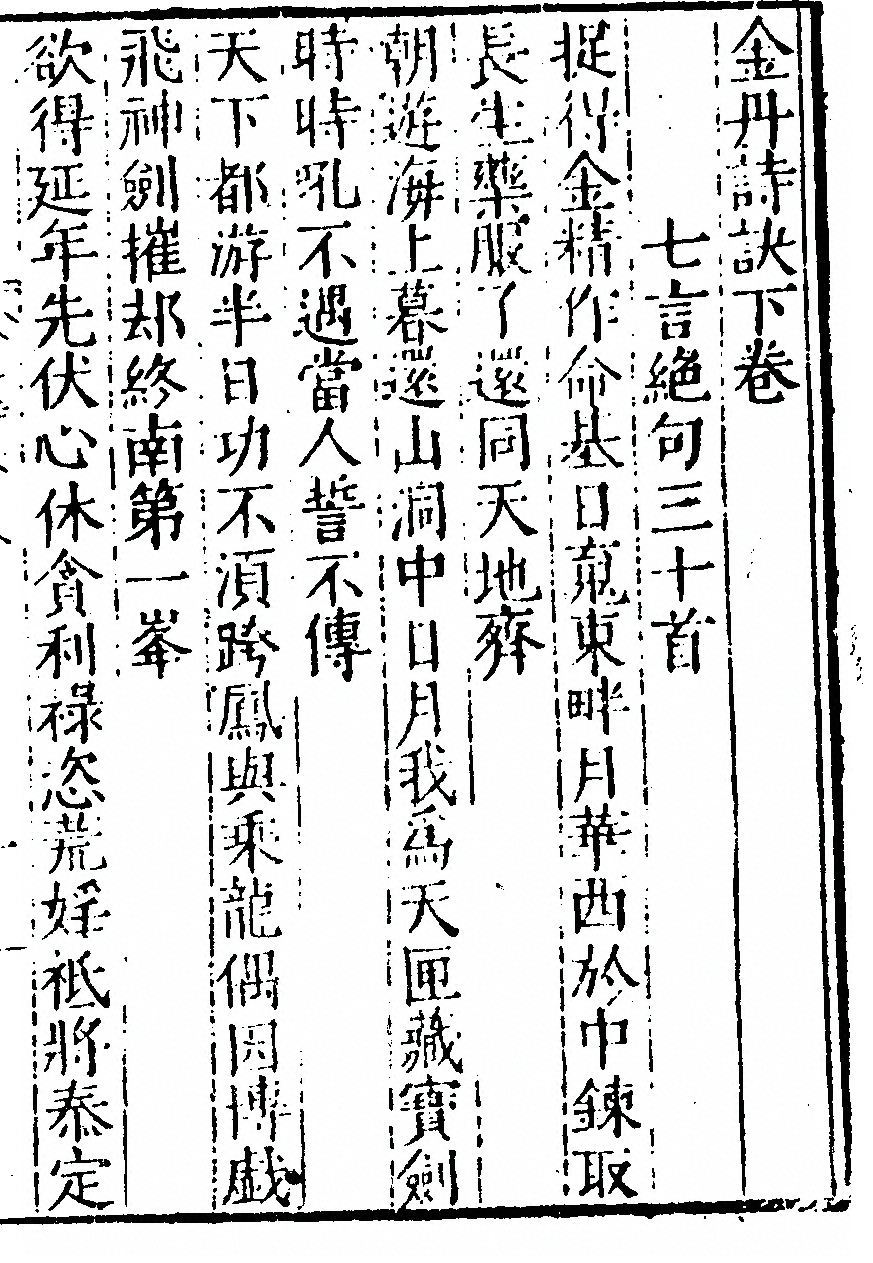 金丹詩訣下卷
七言絕句三十首
捉得金精作命基日䰟東畔月華西於中鍊取
長生藥服了還同天地齊
朝遊海上暮還山洞中日月我為天匣藏寶劍
時時吼不遇當人誓不傳
天下都游半日功不湏跨鳳與乘龍偶因博戲
飛神劍摧却終南第一峯
欲得延年先伏心休貪利祿恣荒婬祗將泰定